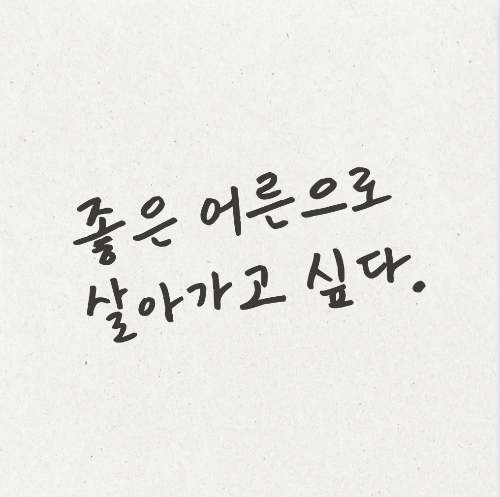 좋은 어른으로
살아가고 싶다.